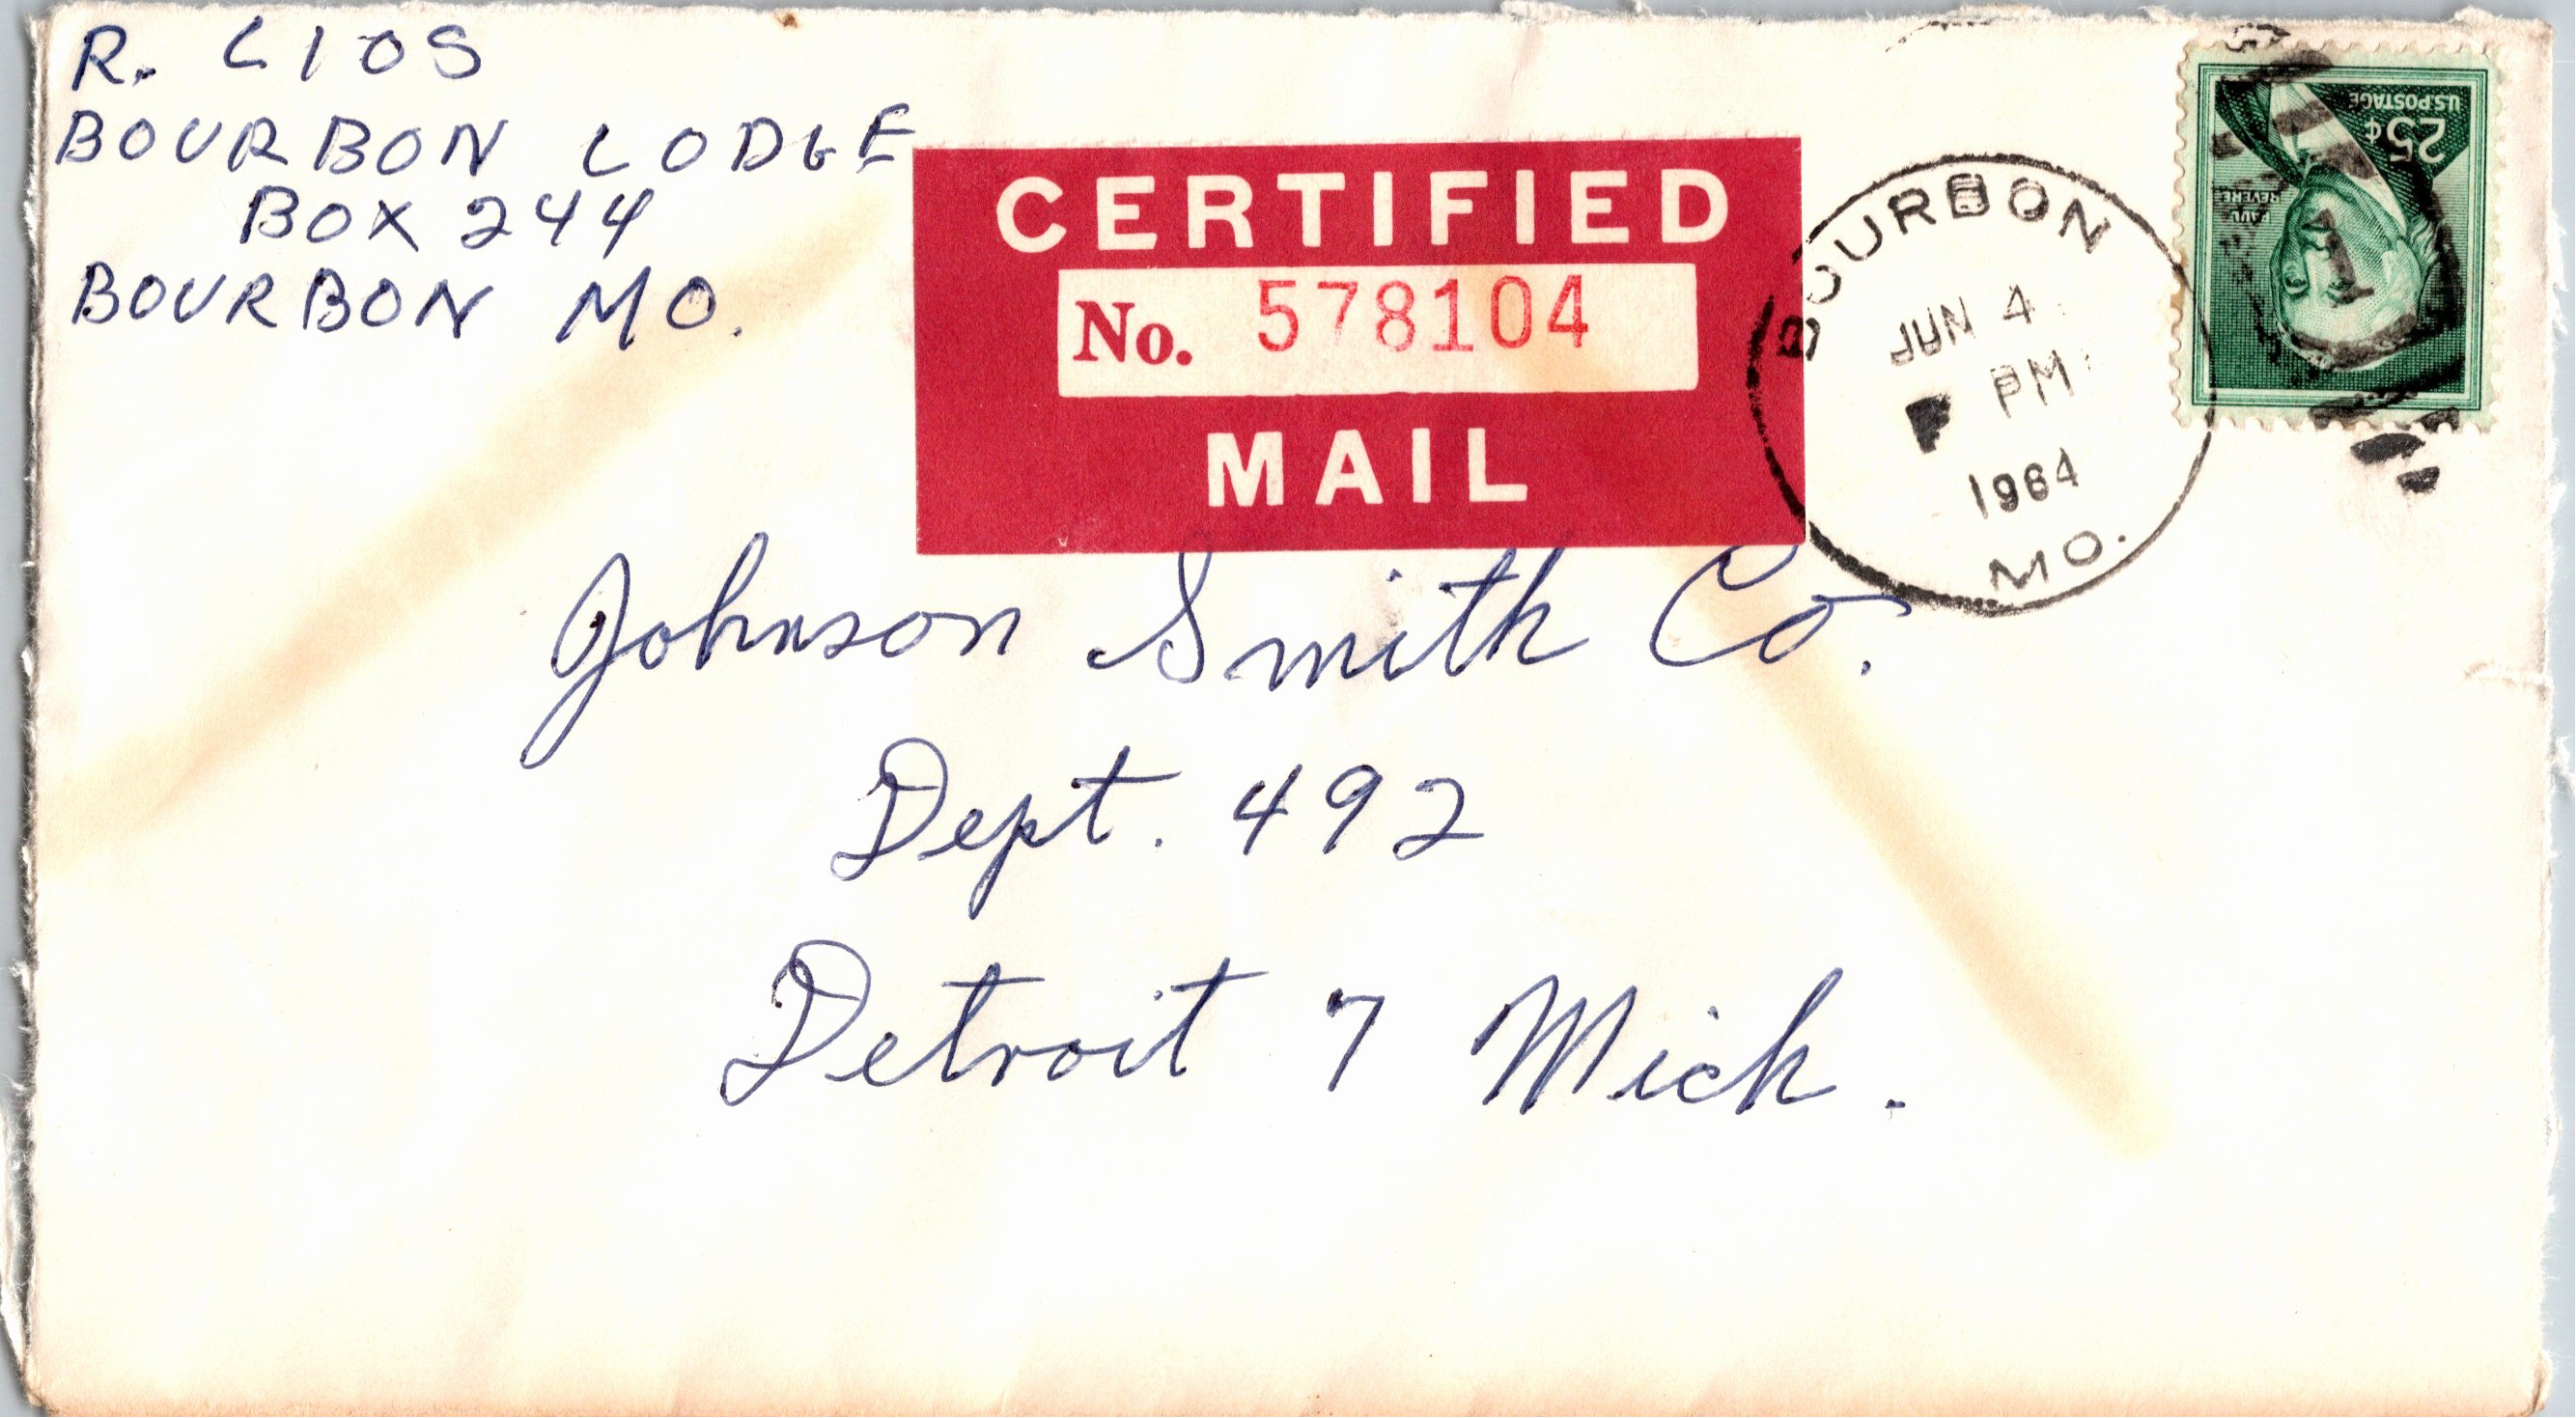 R. LIOS
BOURBON LODGE
BOX 244
BOURBON MO.
CERTIFIED
No. 578104
MAIL
BOURBON
JUN 4
PM
1964
MO.
U.S. POSTAGE
25¢
PAUL
REVERE
Johnson Smith Co.
Dept. 492
Detroit 7 Mich.